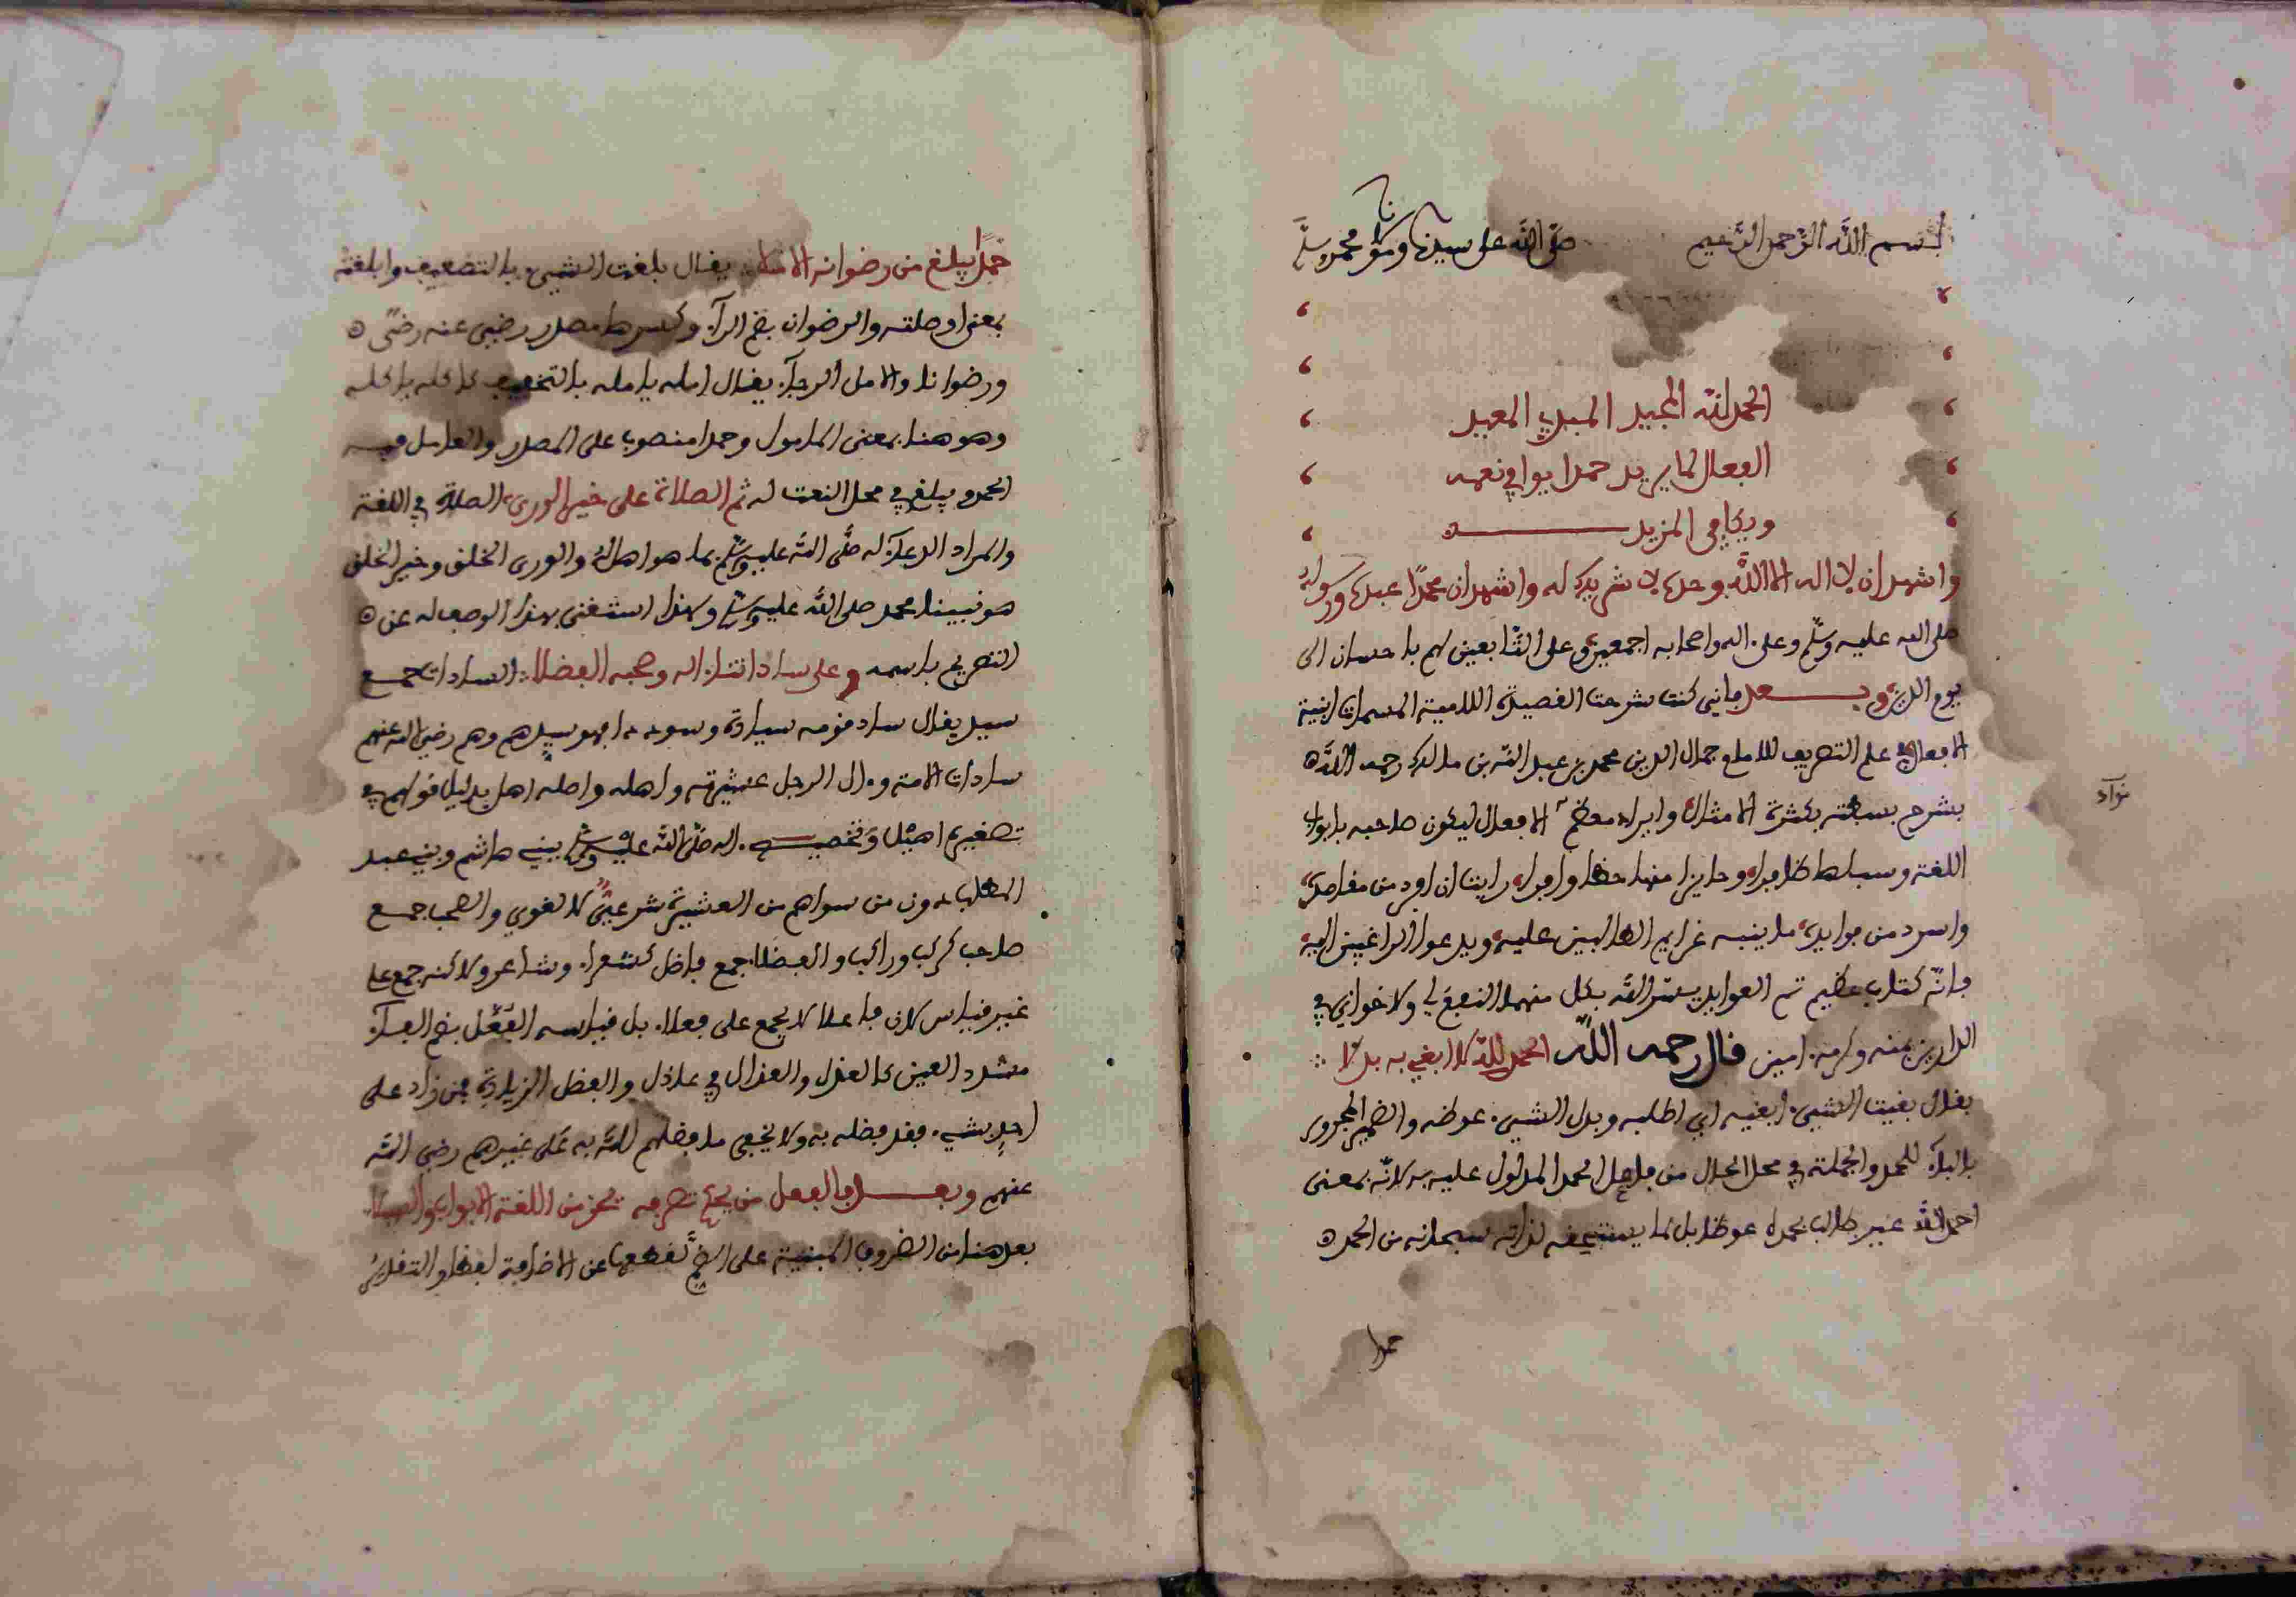 بسم الله الرحمن الرحيم صلى الله على سيدنا ومولانا محمد وسلم
الحمد لله المجيد المبدئ المعيد
الفعال لما يريد حمدا يوافي نعمه
ويكافي المزيد
واشهد ان لا اله الا الله وحده لا شريك له واشهد ان محمدا عبده ورسوله
صلى الله عليه وسلم وعلى اله واصحابه اجمعين وعلى التابعين لهم باحسان الى
يوم الدين وبعد فاني كنت شرحت القصيدة اللامية المسمات ابنية
الافعال في علم التصريف للامام جمال الدين محمد بن عبد الله بن مالك رحمه الله
بشرح بسطته بكثرة الامثال وايراد معظم الافعال ليكون صاحبه بابواب
نوادر
اللغة وسباطها ظافرا وحايزا منها حظا وافرا رايت ان اورد من مقاصده
واسرد من فوايده ما ينبه غرايم الطالبين عليه ويدعوا الراغبين اليه
فانه كتاب عظيم تم الفوايد يسر الله بكل منهما النفع لي ولاخواني في
الدارين بمنه وكرمه امين قال رحمه الله الحمد لله لا ابغي به بدلا
يقال بغيت الشيء ابغيه اي اطلبه وبدل الشيء عوضه والضمير المجرور
بالباء للحمد والجملة في محل الحال من فاعل الحمد المدلول عليه به لانه بمعنى
احمد الله غير طالب بحمده عوضا بل لما يستحقه لذاته سبحانه من الحمد
حمدا
حمدا يبلغ من رضوانه الاملا يقال بلغت الشيء بالتضعيف وابلغته
بمعنى اوصلته والرضوان بضم الراء وكسرها مصدر رضي عنه رضى
ورضوانا والامل الرجاء يقال امله يامله بالتخفيف كاكله ياكله
وهو هنا بمعنى المامول وحمدا منصوب على المصدر والعامل فيه
الحمد ويبلغ في محل النعت له ثم الصلاة على خير الورى الصلاة في اللغة
والمراد الدعاء له صلى الله عليه وسلم بما هو اهله والورى الخلق وخير الخلق
هو نبينا محمد صلى الله عليه وسلم ولهذا استغنى بهذا الوصف له عن
التصريح باسمه وعلى ساداتنا اله وصحبه الفضلا السادات جمع
سيد يقال ساد قومه سيادة وسوددا فهو سيدهم وهم رضي الله عنهم
سادات الامة وءال الرجل عشيرته واهله واصله اهل بدليل قولهم في
تصغيره اهيل وتخصيص اله صلى الله عليه وسلم ببني هاشم وبني عبد
المطلب دون من سواهم من العشيرة شرعي لا لغوي والصحب جمع
صاحب كركب وراكب والفضلا جمع فاضل كشعراء وشاعر ولاكنه جمع على
غير قياس لان فاعلا لا يجمع على فعلاء بل قياسه الفعل بضم الفاء
مشدد العين كالعذل والعذال في عاذل والفضل الزيادة فمن زاد على
احد بشيء فقد فضله به ولا يخفى ما فضلهم الله به على غيرهم رضي الله
عنهم وبعد فالفعل من يحكم تصرفه يحز من اللغة الابواب والسبلا
بعد هنا من الظروف المبنية على الضم لقطعها عن الاضافة لفظا والتقدير